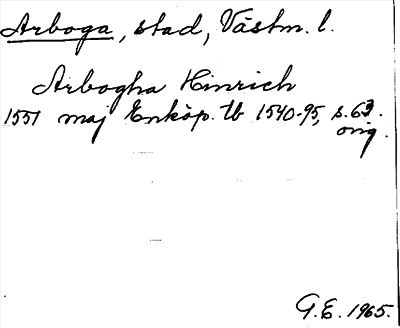 Arboga, stad, Västm. l.
Arbogha Hinrich
1551 maj Enköp. tb 1540-95, s. 63.
orig.
G. E. 1965.